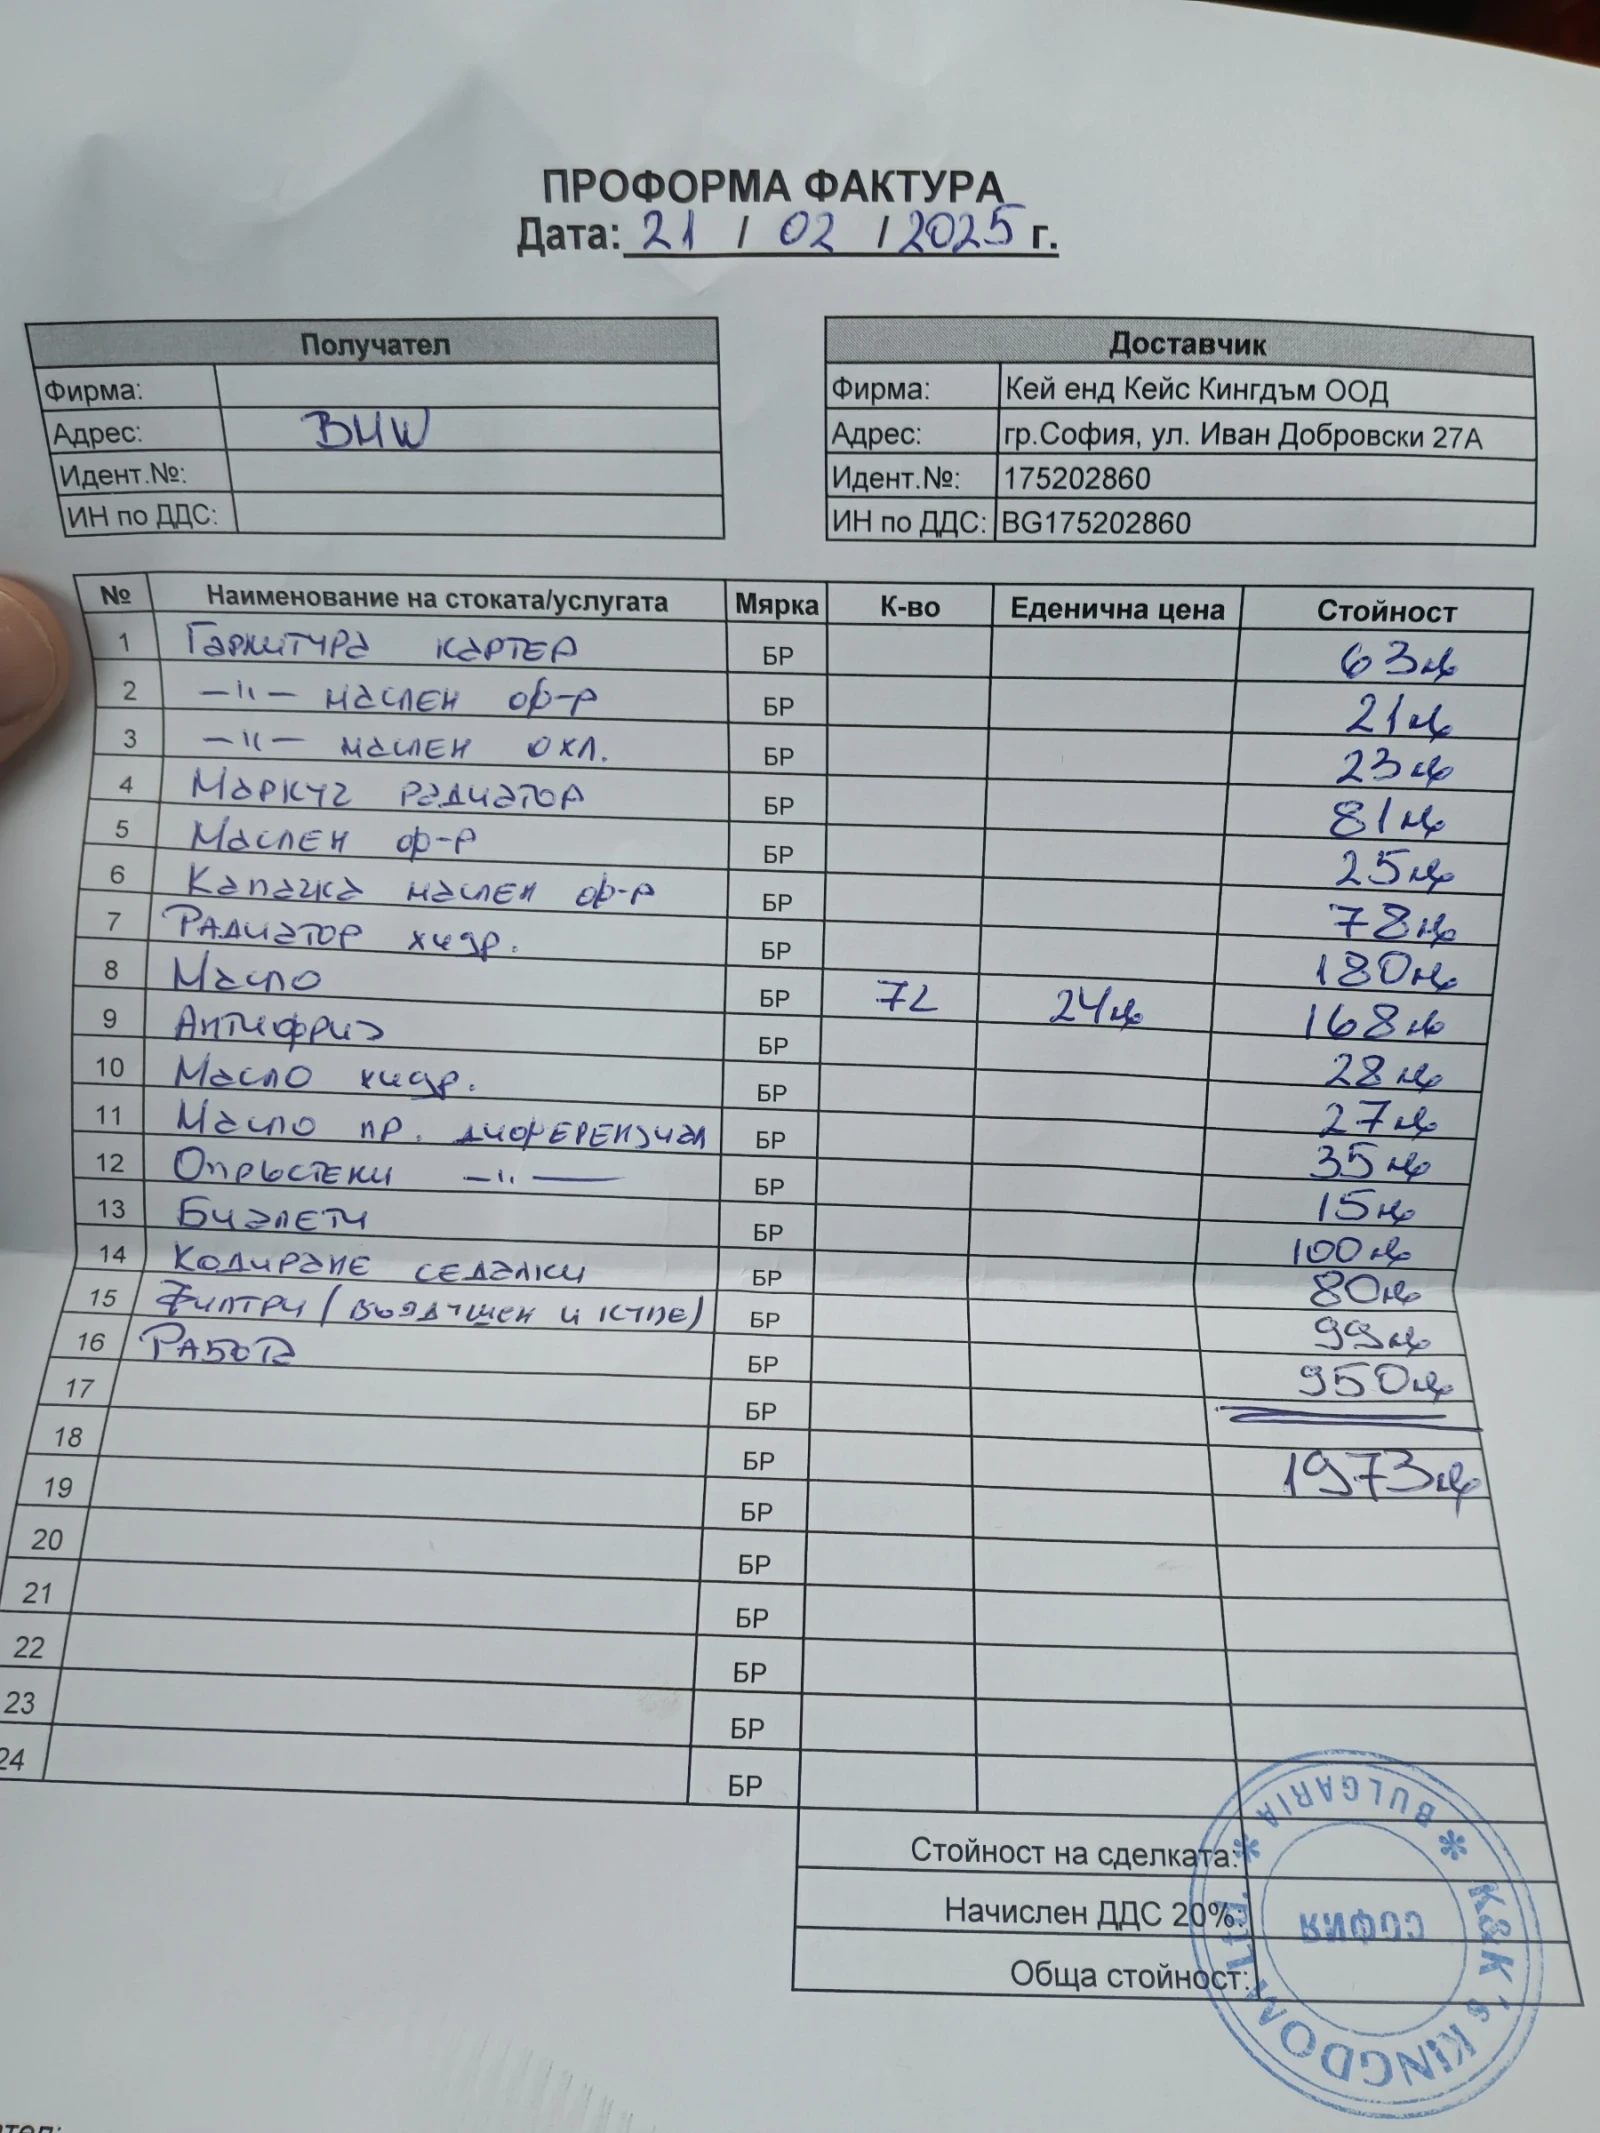 ПРОФОРМА ФАКТУРА
Дата: 21 / 02 / 2025 г.
Получател
Фирма:
Адрес: BMW
Идент.№:
ИН по ДДС:
Доставчик
Фирма: Кей енд Кейс Кингдъм ООД
Адрес: гр.София, ул. Иван Добровски 27А
Идент.№: 175202860
ИН по ДДС: BG175202860
№ Наименование на стоката/услугата Мярка К-во Еденична цена Стойност
1 Гарнитура картер БР 63лв
2 —"— маслен ф-р БР 21лв
3 —"— маслен охл. БР 23лв
4 Маркуч радиатор БР 81лв
5 Маслен ф-р БР 25лв
6 Капачка маслен ф-р БР 78лв
7 Радиатор хидр. БР 180лв
8 Масло БР 7L 24лв 168лв
9 Антифриз БР 28лв
10 Масло хидр. БР 27лв
11 Масло пр. диференциал БР 35лв
12 Опръстени —"— БР 15лв
13 Биалети БР 100лв
14 Кодиране седалки БР 80лв
15 Филтри (въздушен и купе) БР 99лв
16 Работа БР 950лв
17 БР
18 БР 1973лв
19 БР
20 БР
21 БР
22 БР
23 БР
24 БР
Стойност на сделката:
Начислен ДДС 20%:
Обща стойност:
K&K's KINGDOM Ltd. * BULGARIA *
СОФИЯ